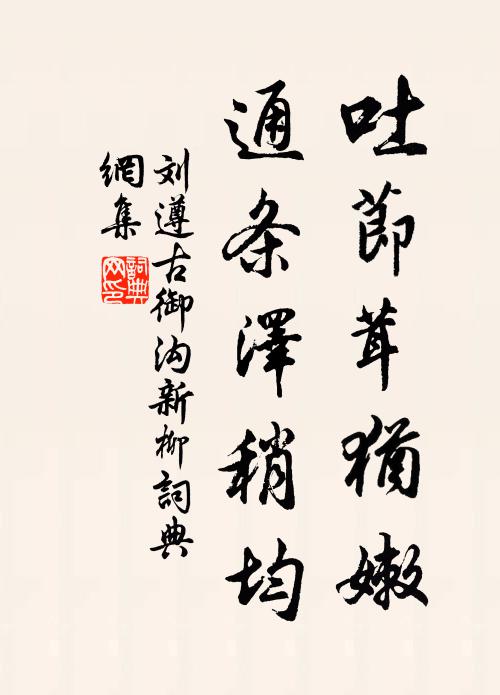 吐節茸猶嫩
通条澤稍均
刘遵古御沟新柳詞典
網集
詞典網印